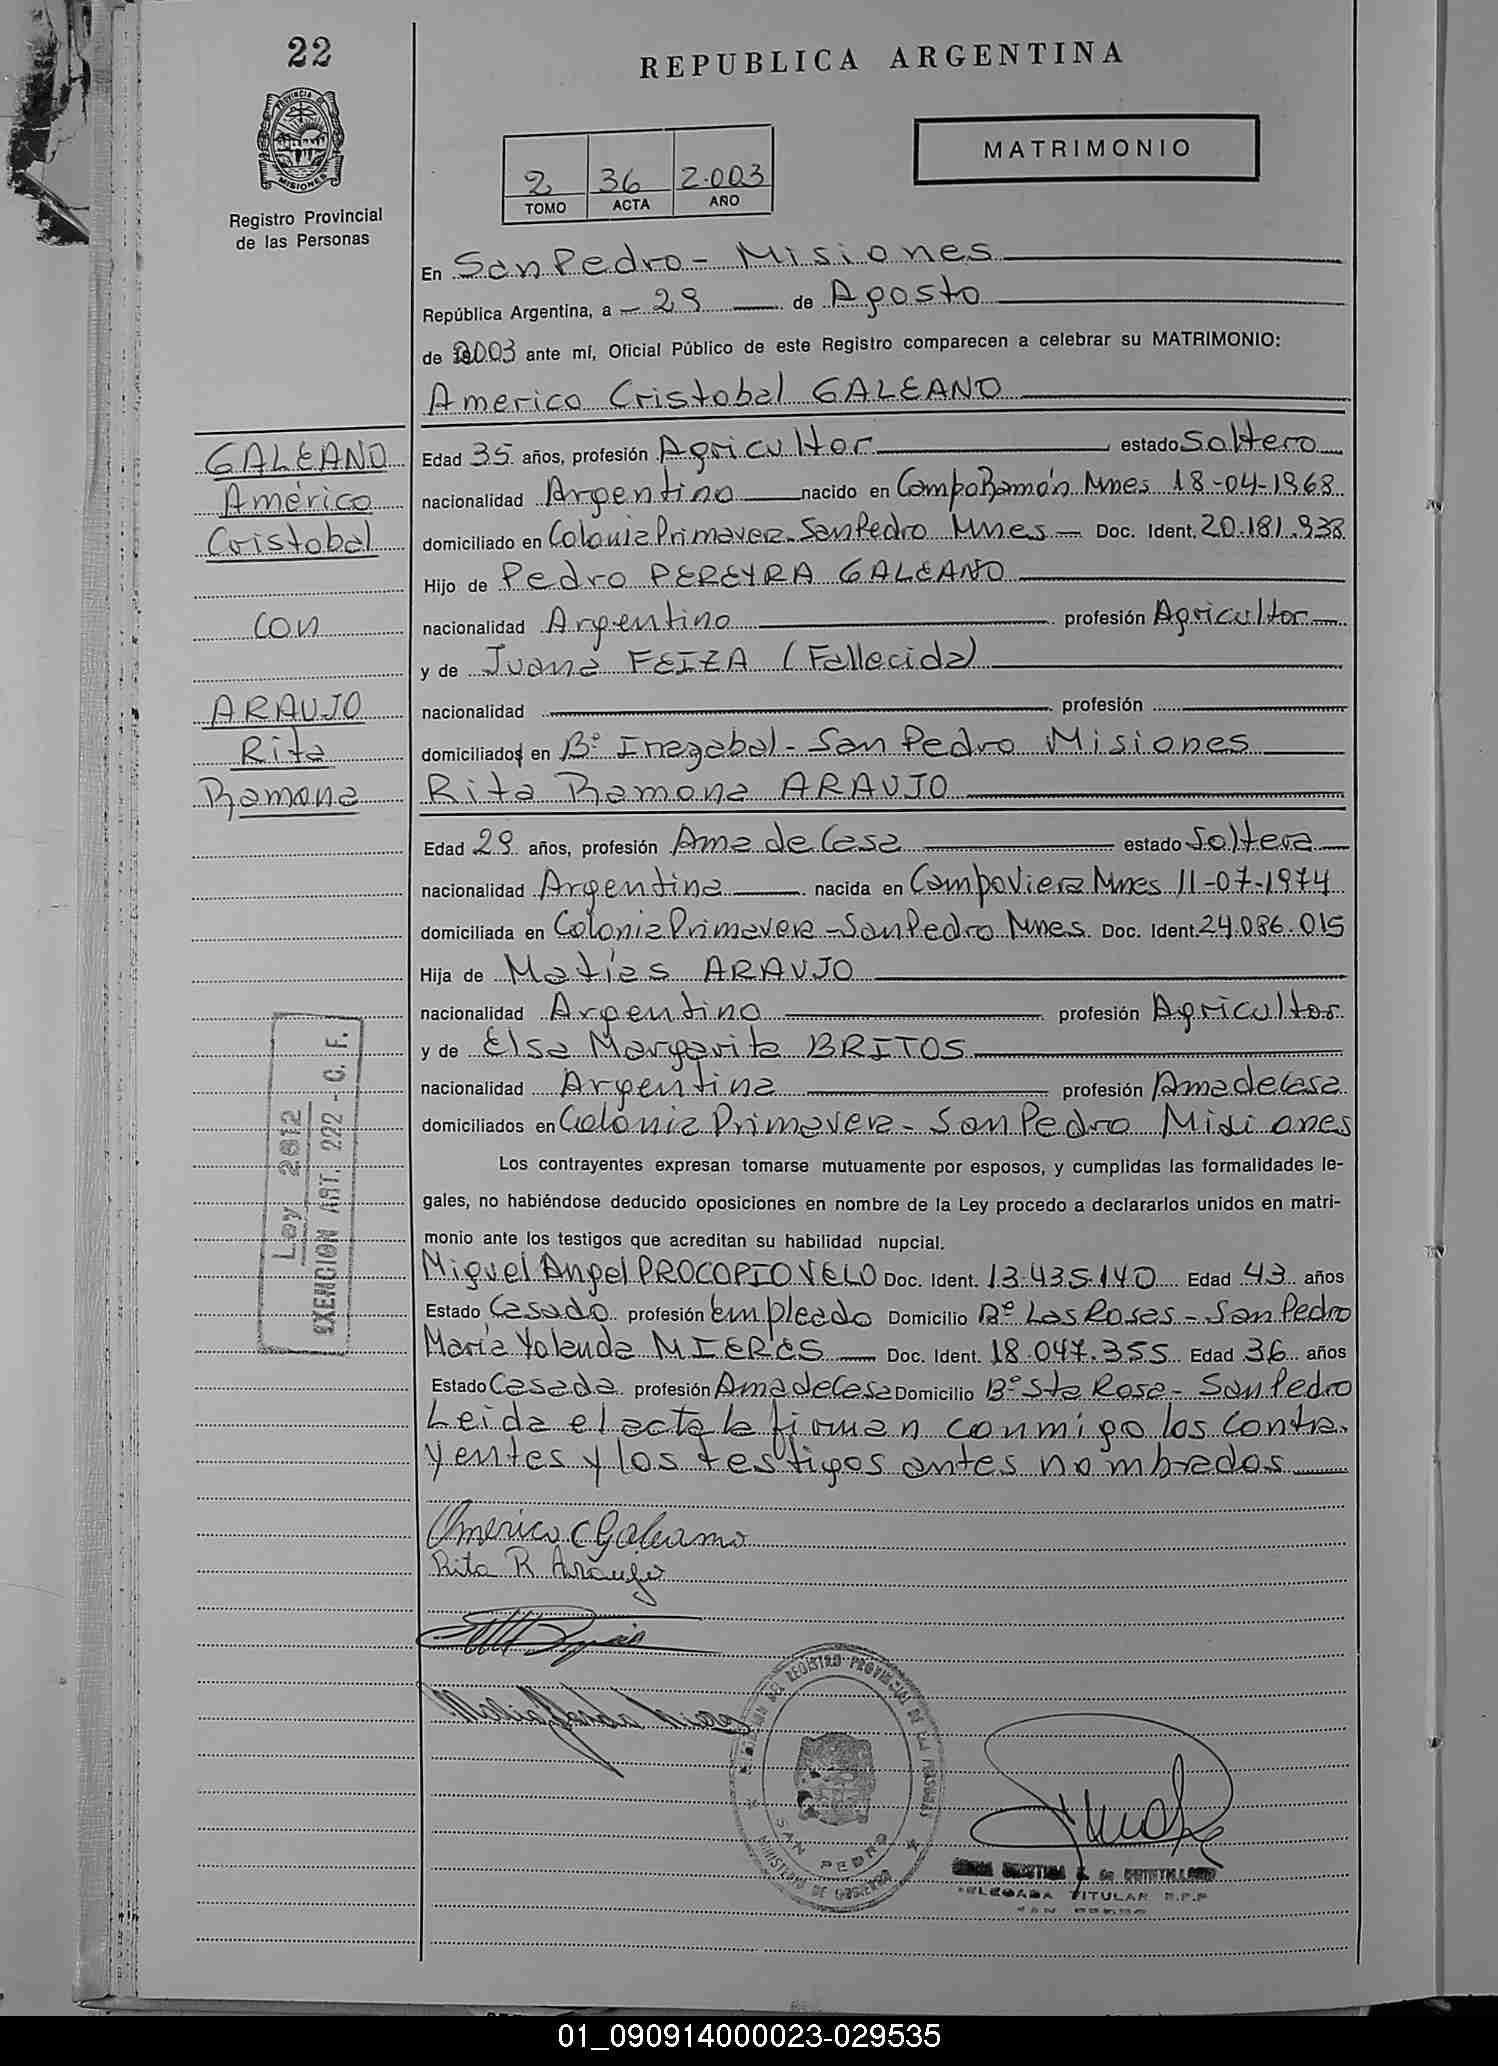 22
REPUBLICA ARGENTINA
PROVINCIA DE
MISIONES
MATRIMONIO
2 36 2.003
TOMO ACTA AÑO
Registro Provincial
de las Personas
En San Pedro - Misiones
República Argentina, a - 29 - de Agosto
de 2003 ante mí, Oficial Público de este Registro comparecen a celebrar su MATRIMONIO:
Americo Cristobal GALEANO
GALEANO
Américo
Cristobal
con
ARAUJO
Rita
Ramona
Edad 35 años, profesión Agricultor estado Soltero
nacionalidad Argentino nacido en Campo Ramón Mnes 18-04-1968
domiciliado en Colonia Primavera - San Pedro Mnes - Doc. Ident. 20.181.938
Hijo de Pedro PEREYRA GALEANO
nacionalidad Argentino profesión Agricultor
y de Juana FEIZA (Fallecida)
nacionalidad profesión
domiciliados en Bº Inegabal - San Pedro Misiones
Rita Ramona ARAUJO
Edad 29 años, profesión Ama de Casa estado Soltera
nacionalidad Argentina nacida en Campo Viera Mnes 11-07-1974
domiciliada en Colonia Primavera - San Pedro Mnes. Doc. Ident. 24.086.015
Hija de Matías ARAUJO
nacionalidad Argentino profesión Agricultor
y de Elsa Margarita BRITOS
nacionalidad Argentina profesión Ama de Casa
domiciliados en Colonia Primavera - San Pedro Misiones
Ley 2812
EXENCION ART. 222 - C. F.
Los contrayentes expresan tomarse mutuamente por esposos, y cumplidas las formalidades le-
gales, no habiéndose deducido oposiciones en nombre de la Ley procedo a declararlos unidos en matri-
monio ante los testigos que acreditan su habilidad nupcial.
Miguel Angel PROCOPIO VELO Doc. Ident. 13.435.140 Edad 43 años
Estado Casado profesión Empleado Domicilio Bº Las Rosas - San Pedro
María Yolanda MIERES Doc. Ident. 18.047.355 Edad 36 años
Estado Casada profesión Ama de Casa Domicilio Bº Sta Rosa - San Pedro
Leida el acta la firman conmigo los contra-
yentes y los testigos antes nombrados
Americo C Galeano
Rita R Araujo
DEL REGISTRO PROVINCIAL DE LAS PERSONAS
SAN PEDRO
MINISTERIO DE GOBIERNO
DELEGADA TITULAR R.P.P
SAN PEDRO
01_090914000023-029535